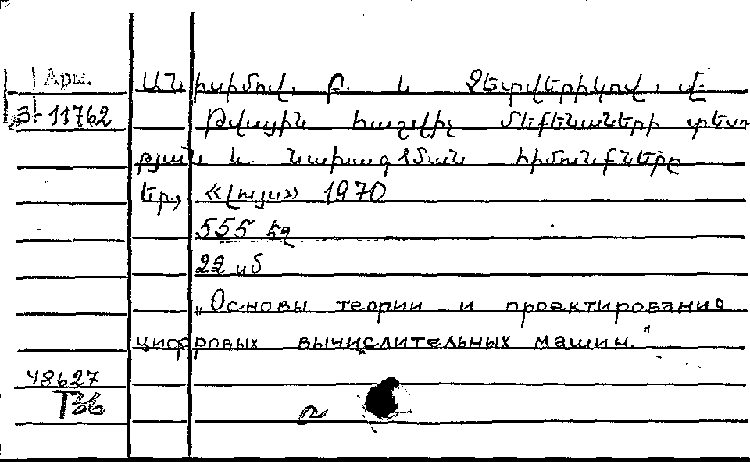 Арм.
З-11762
Անիսիմով, Բ. և Չետվերիկով, Վ.
Թվային հաշվիչ մեքենաների տեսու
թյան և նախագծման հիմունքները
Եր., «Լույս» 1970
555 էջ
22 սմ
"Основы теории и проектирования
цифровых вычислительных машин."
48627